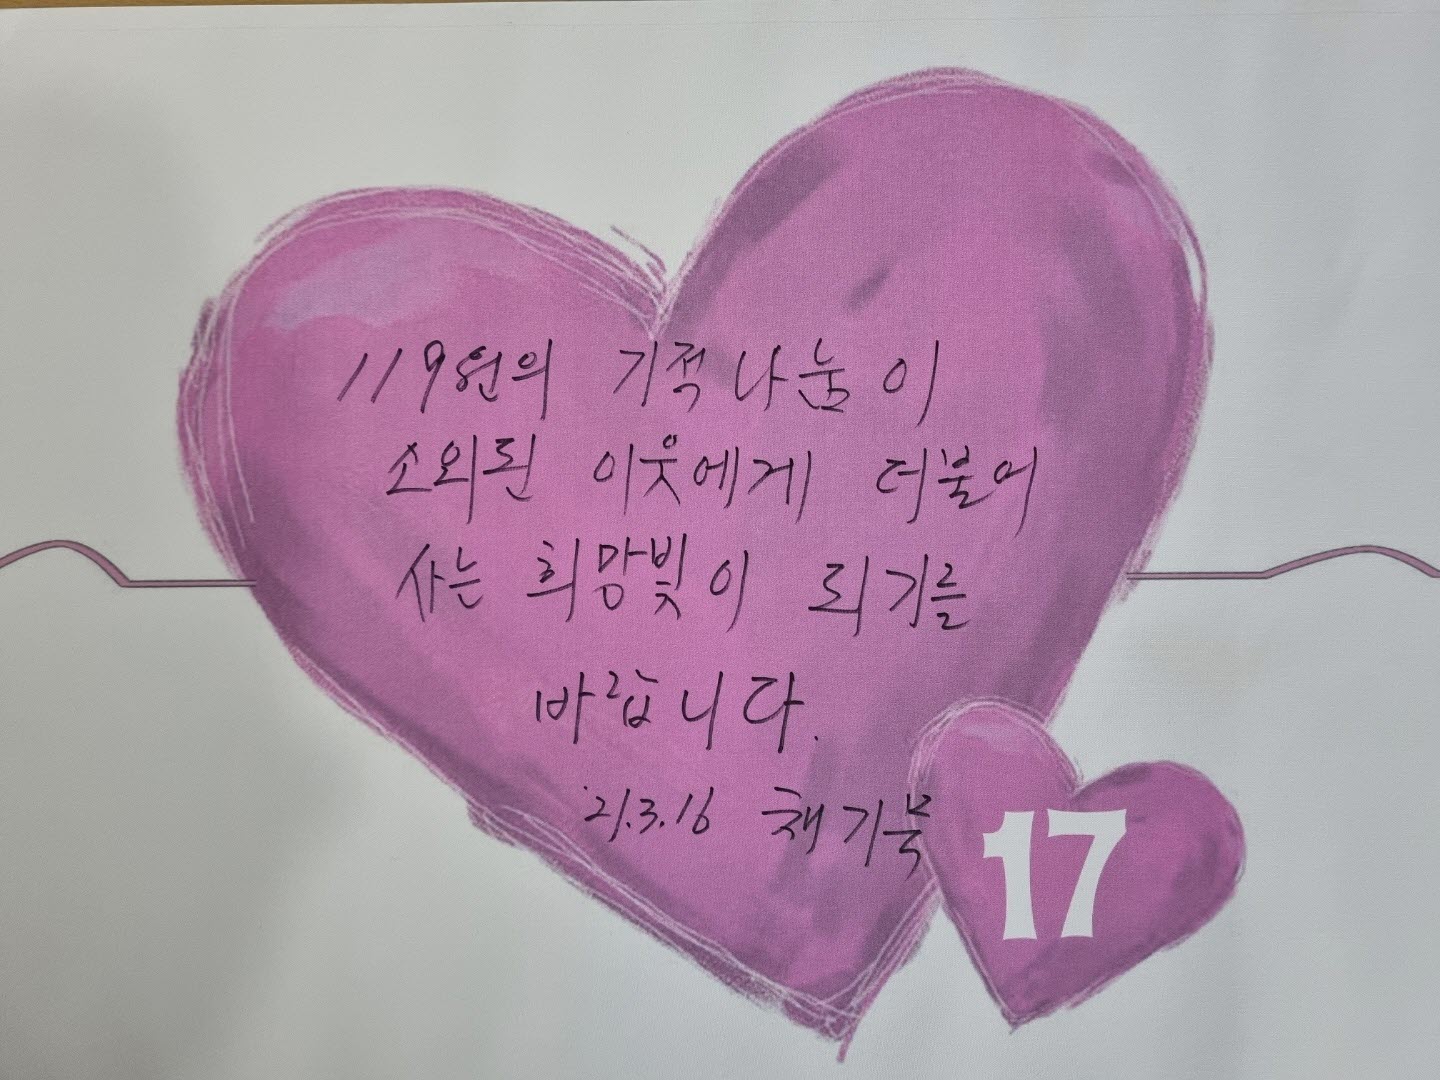 119원의 기적 나눔이
소외된 이웃에게 더불어
사는 희망빛이 되기를
바랍니다.
'21.3.16 채기북
17